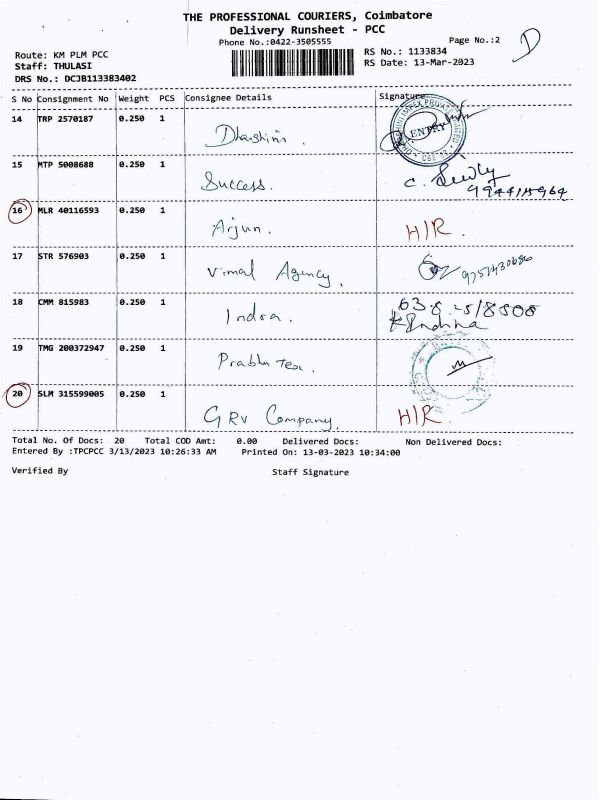 THE PROFESSIONAL COURIERS, Coimbatore
Delivery Runsheet - PCC
Phone No.:0422-3505555
Page No.:2
D
Route: KM PLM PCC
Staff: THULASI
DRS No.: DCJB113383402
RS No.: 1133834
RS Date: 13-Mar-2023
S No Consignment No Weight PCS Consignee Details Signature
14 TRP 2570187 0.250 1
Dharshini.
ENTRY
15 MTP 5008688 0.250 1
Success.
16 MLR 40116593 0.250 1
Arjun. H/R.
17 STR 576903 0.250 1
Vimal Agency.
18 CMM 815983 0.250 1
Indra.
19 TMG 200372947 0.250 1
Prabhu Tex.
20 SLM 315599005 0.250 1
GRV Company. H/R.
Total No. Of Docs: 20 Total COD Amt: 0.00 Delivered Docs: Non Delivered Docs:
Entered By :TPCPCC 3/13/2023 10:26:33 AM Printed On: 13-03-2023 10:34:00
Verified By Staff Signature